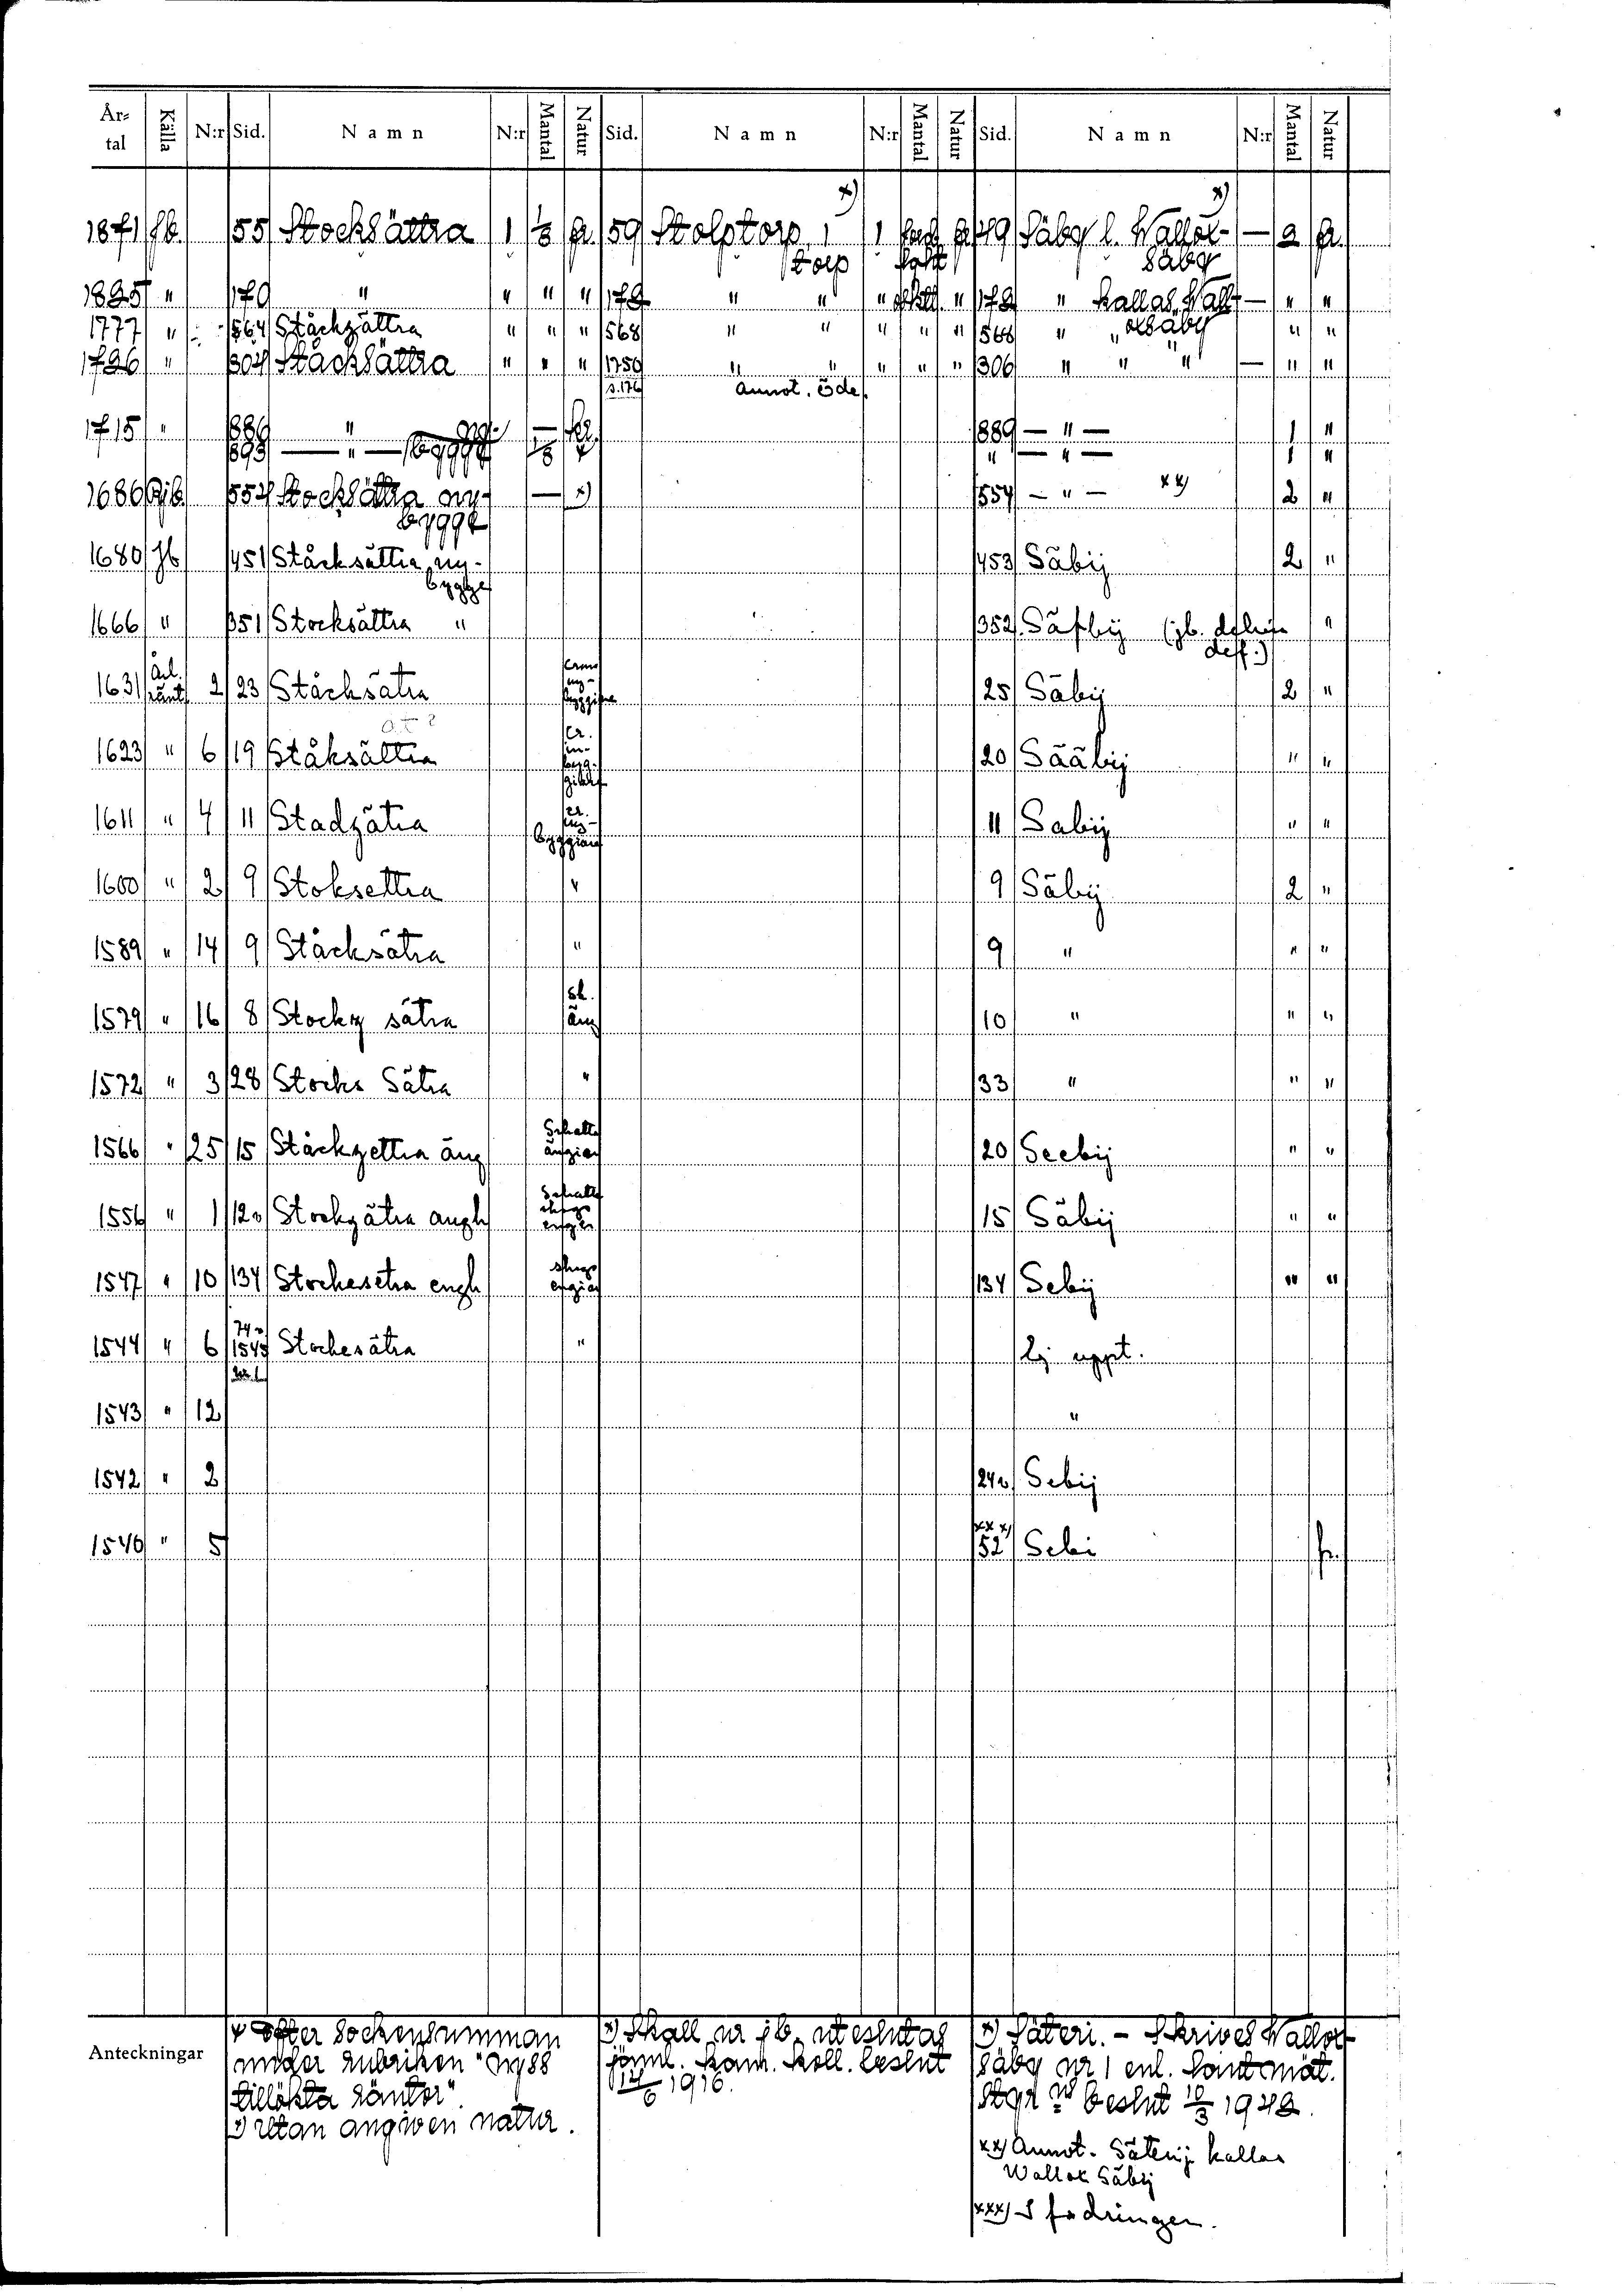 År-tal Källa N:r Sid. Namn N:r Mantal Natur Sid. Namn N:r Mantal Natur Sid. Namn N:r Mantal Natur
1871 Jb. 55 Stocksättra 1 1/8 fr. 59 Stolptorp x) 1 fr. 49 Säby l. Wallox- x) — 2 fr.
torp säby
1825 " 170 " " " " 172 " " " " 172 " kallas Wall- — " "
1777 " 564 Ståckzättra " " " 568 " " " " " 568 " " oxsäby " "
1726 " 304 Ståcksättra " " " 1750 " " " " " 306 " " " — " "
s. 176 annot. öde.
1715 " 886 " ny- — kr. 889 — " — 1 "
893 — " — bygge 1/8 " — " — 1 "
1686 Rjb. 554 Stocksättra ny- — x) 554 — " — xx) 2 "
bygge
1680 Jb 451 Ståcksättra ny- 453 Säbij 2 "
bygge
1666 " 351 Stocksättra " 352 Säfbij (jb. delvis "
def.)
1631 Årl. ränt. 2 23 Ståcksätra ny- 25 Säbij 2 "
1623 " 6 19 Ståksättra cr. 20 Sääbij " "
1611 " 4 11 Stadzätra cr. ny- 11 Sabij " "
1600 " 2 9 Stoksettra " 9 Säbij 2 "
1589 " 14 9 Ståcksätra " 9 " " "
1579 " 16 8 Stocky sätra sk. äng 10 " " "
1572 " 3 28 Stocks Sätra " 33 " " "
1566 " 25 15 Ståckzettra äng Schatte ängior 20 Seebij " "
1556 " 1 12v Stockzätra angh Schatte skogs enger 15 Säbij " "
1547 " 10 134 Stockesetra engh skogs engior 134 Sebij " "
74v
1544 " 6 1545 Stockesätra " Ej uppt.
nr 1
1543 " 12 "
1542 " 2 24v Sebij
xxx)
1540 " 5 52 Sebi fr.
Anteckningar
Efter sockensumman
under rubriken "Ny 88
tillökta räntor".
x) Utan angiven natur.
x) Skall ur jb. uteslutas
jäml. kam. koll. beslut
14/6 1916.
x) Säteri. – Skrives Wallox-
säby nr 1 enl. lantmät.
styr:ns beslut 10/3 1942.
xx) Annot. Säterij kallas
Wallox Säbij
xxx) I fodringen.